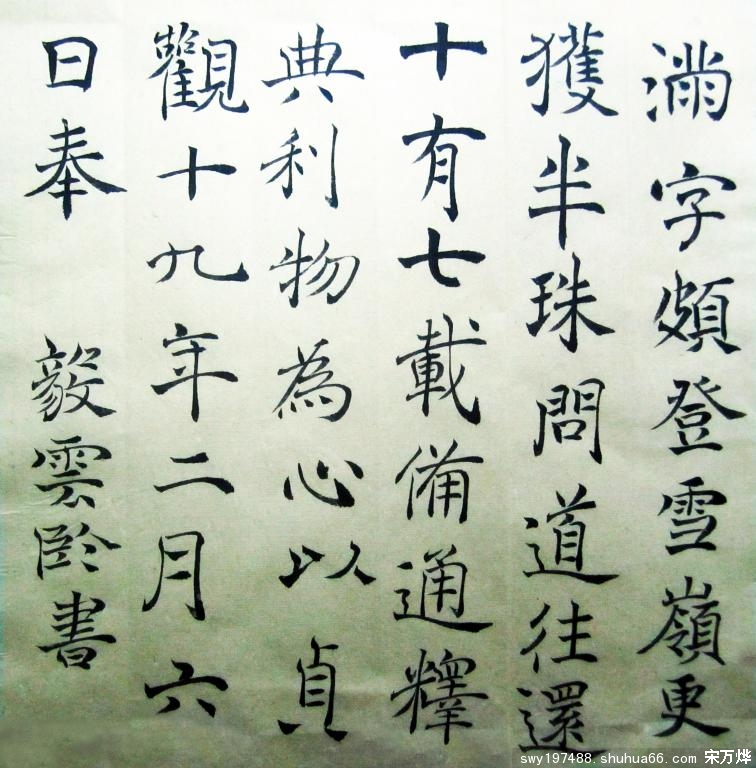 滿字頗登雪嶺更
獲半珠問道往還
十有七載備通釋
典利物為心以貞
觀十九年二月六
日奉 毅雲臨書
swy197488.shuhua66.com 宋万烨